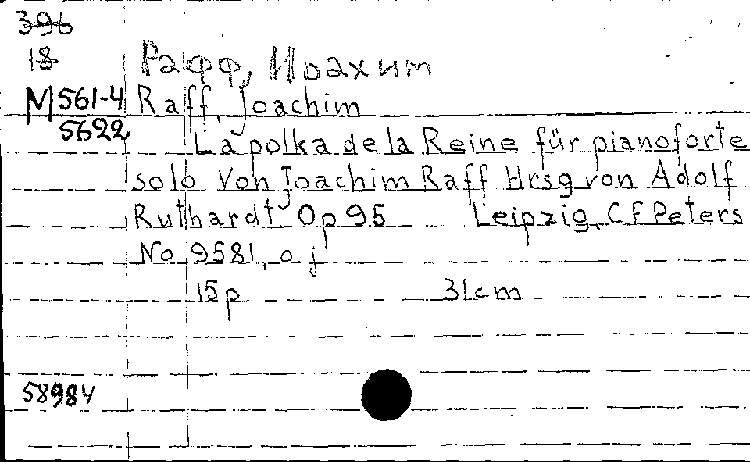 396
18 Рафф, Иоахим
M 561-4 Raff, Joachim
5622
La polka de la Reine für pianoforte
solo von Joachim Raff Hrsg von Adolf
Ruthardt Op 95 Leipzig, C F Peters
No 9581, o j
15 p 31 cm
58984